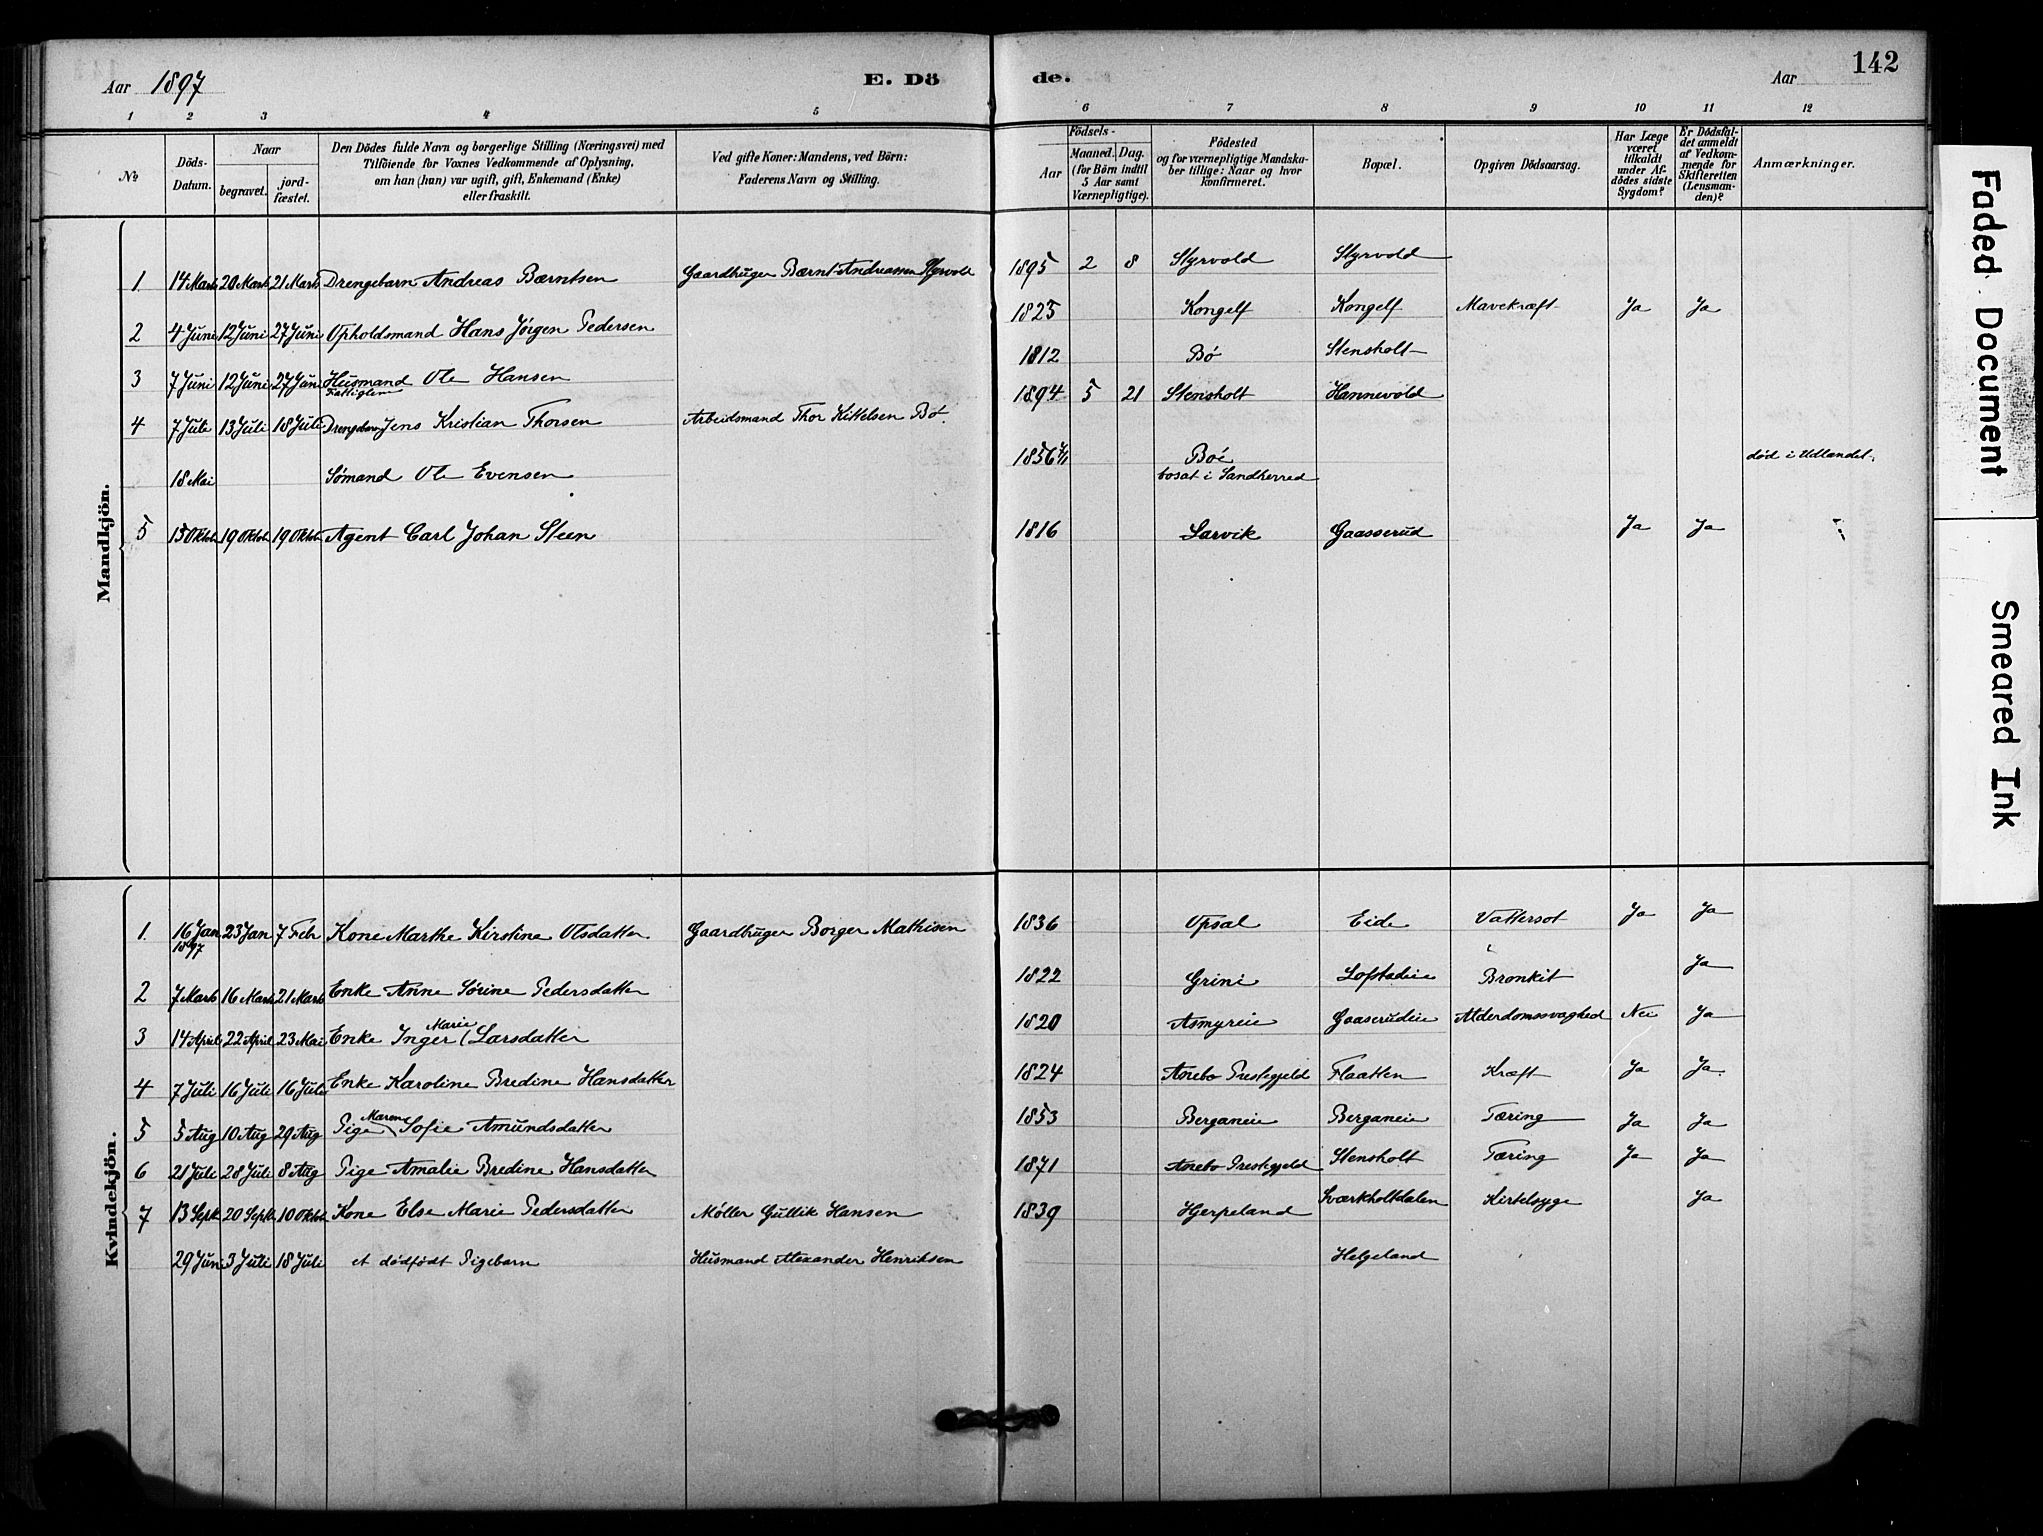 Aar 1897
E. Dö
de.
Aar
142
1 2 3 4 5 6 7 8 9 10 11 12
No
Döds-
Datum.
Naar
begravet.
jord-
fæstet.
Den Dödes fulde Navn og borgerlige Stilling (Næringsvei) med
Tilföiende for Voxnes Vedkommende af Oplysning,
om han (hun) var ugift, gift, Enkemand (Enke)
eller fraskilt.
Ved gifte Koner: Mandens, ved Börn:
Faderens Navn og Stilling.
Födsels-
Aar
Maaned. Dag.
(for Börn indtil
5 Aar samt
Værnepligtige).
Födested
og for værnepligtige Mandska-
ber tillige: Naar og hvor
konfirmeret.
Bopæl.
Opgiven Dödsaarsag.
Har Læge
været
tilkaldt
under Af-
dödes sidste
Sygdom?
Er Dödsfal-
det anmeldt
af Vedkom-
mende for
Skifteretten
(Lensman-
den)?
Anmærkninger.
Mandkjön.
1 14 Marts 20 Marts 21 Marts Drengebarn Andreas Bærntsen Gaardbruger Bærnt Andreassen Styrvold 1895 2 8 Styrvold Styrvold
2 4 Juni 12 Juni 27 Juni Opholdsmand Hans Jörgen Pedersen 1825 Kongelf Kongelf Mavekræft Ja Ja
3 7 Juni 12 Juni 27 Juni Husmand Ole Hansen 1812 Bö Stensholt
Fattiglem
4 7 Juli 13 Juli 18 Juli Drengebarn Jens Kristian Thorsen Arbeidsmand Thor Kittelsen Bö. 1894 5 21 Stensholt Hannevold
18 Mai Sömand Ole Evensen 1856 Böe død i Udlandet.
bosat i Sandherred
5 15 Oktob 19 Oktob 19 Oktob Agent Carl Johan Steen 1816 Larvik Gaasserud Ja Ja
Kvindekjön.
1 16 Jan 23 Jan 7 Febr Kone Marthe Kirstine Olsdatter Gaardbruger Borger Mathisen 1836 Opsal Eide Vattersot Ja Ja
1897
2 7 Marts 16 Marts 21 Marts Enke Anne Sörine Pedersdatter 1822 Grini Lofstadeie Bronkit Ja
3 14 April 22 April 23 Mai Enke Inger Marie Larsdatter 1820 Asmyreie Gaaserudeie Alderdomssvaghed Nei Ja
4 7 Juli 16 Juli 16 Juli Enke Karoline Bredine Hansdatter 1824 Anebo Prestegjeld Flaatten Kræft Ja Ja.
5 5 Aug 10 Aug 29 Aug Pige Maren Sofie Amundsdatter 1853 Berganeie Berganeie Tæring Ja Ja
6 21 Juli 28 Juli 8 Aug Pige Amalie Bredine Hansdatter 1871 Anebo Prestegjeld Stensholt Tæring Ja Ja
7 13 Septb 20 Septb 10 Oktob Kone Else Marie Pedersdatter Möller Gullik Hansen 1839 Hjerpeland Sværkholtdalen Kirtelsyge Ja
29 Juni 3 Juli 18 Juli et dødfødt Pigebarn Husmand Alexander Henriksen Helgeland
Faded Document
Smeared Ink